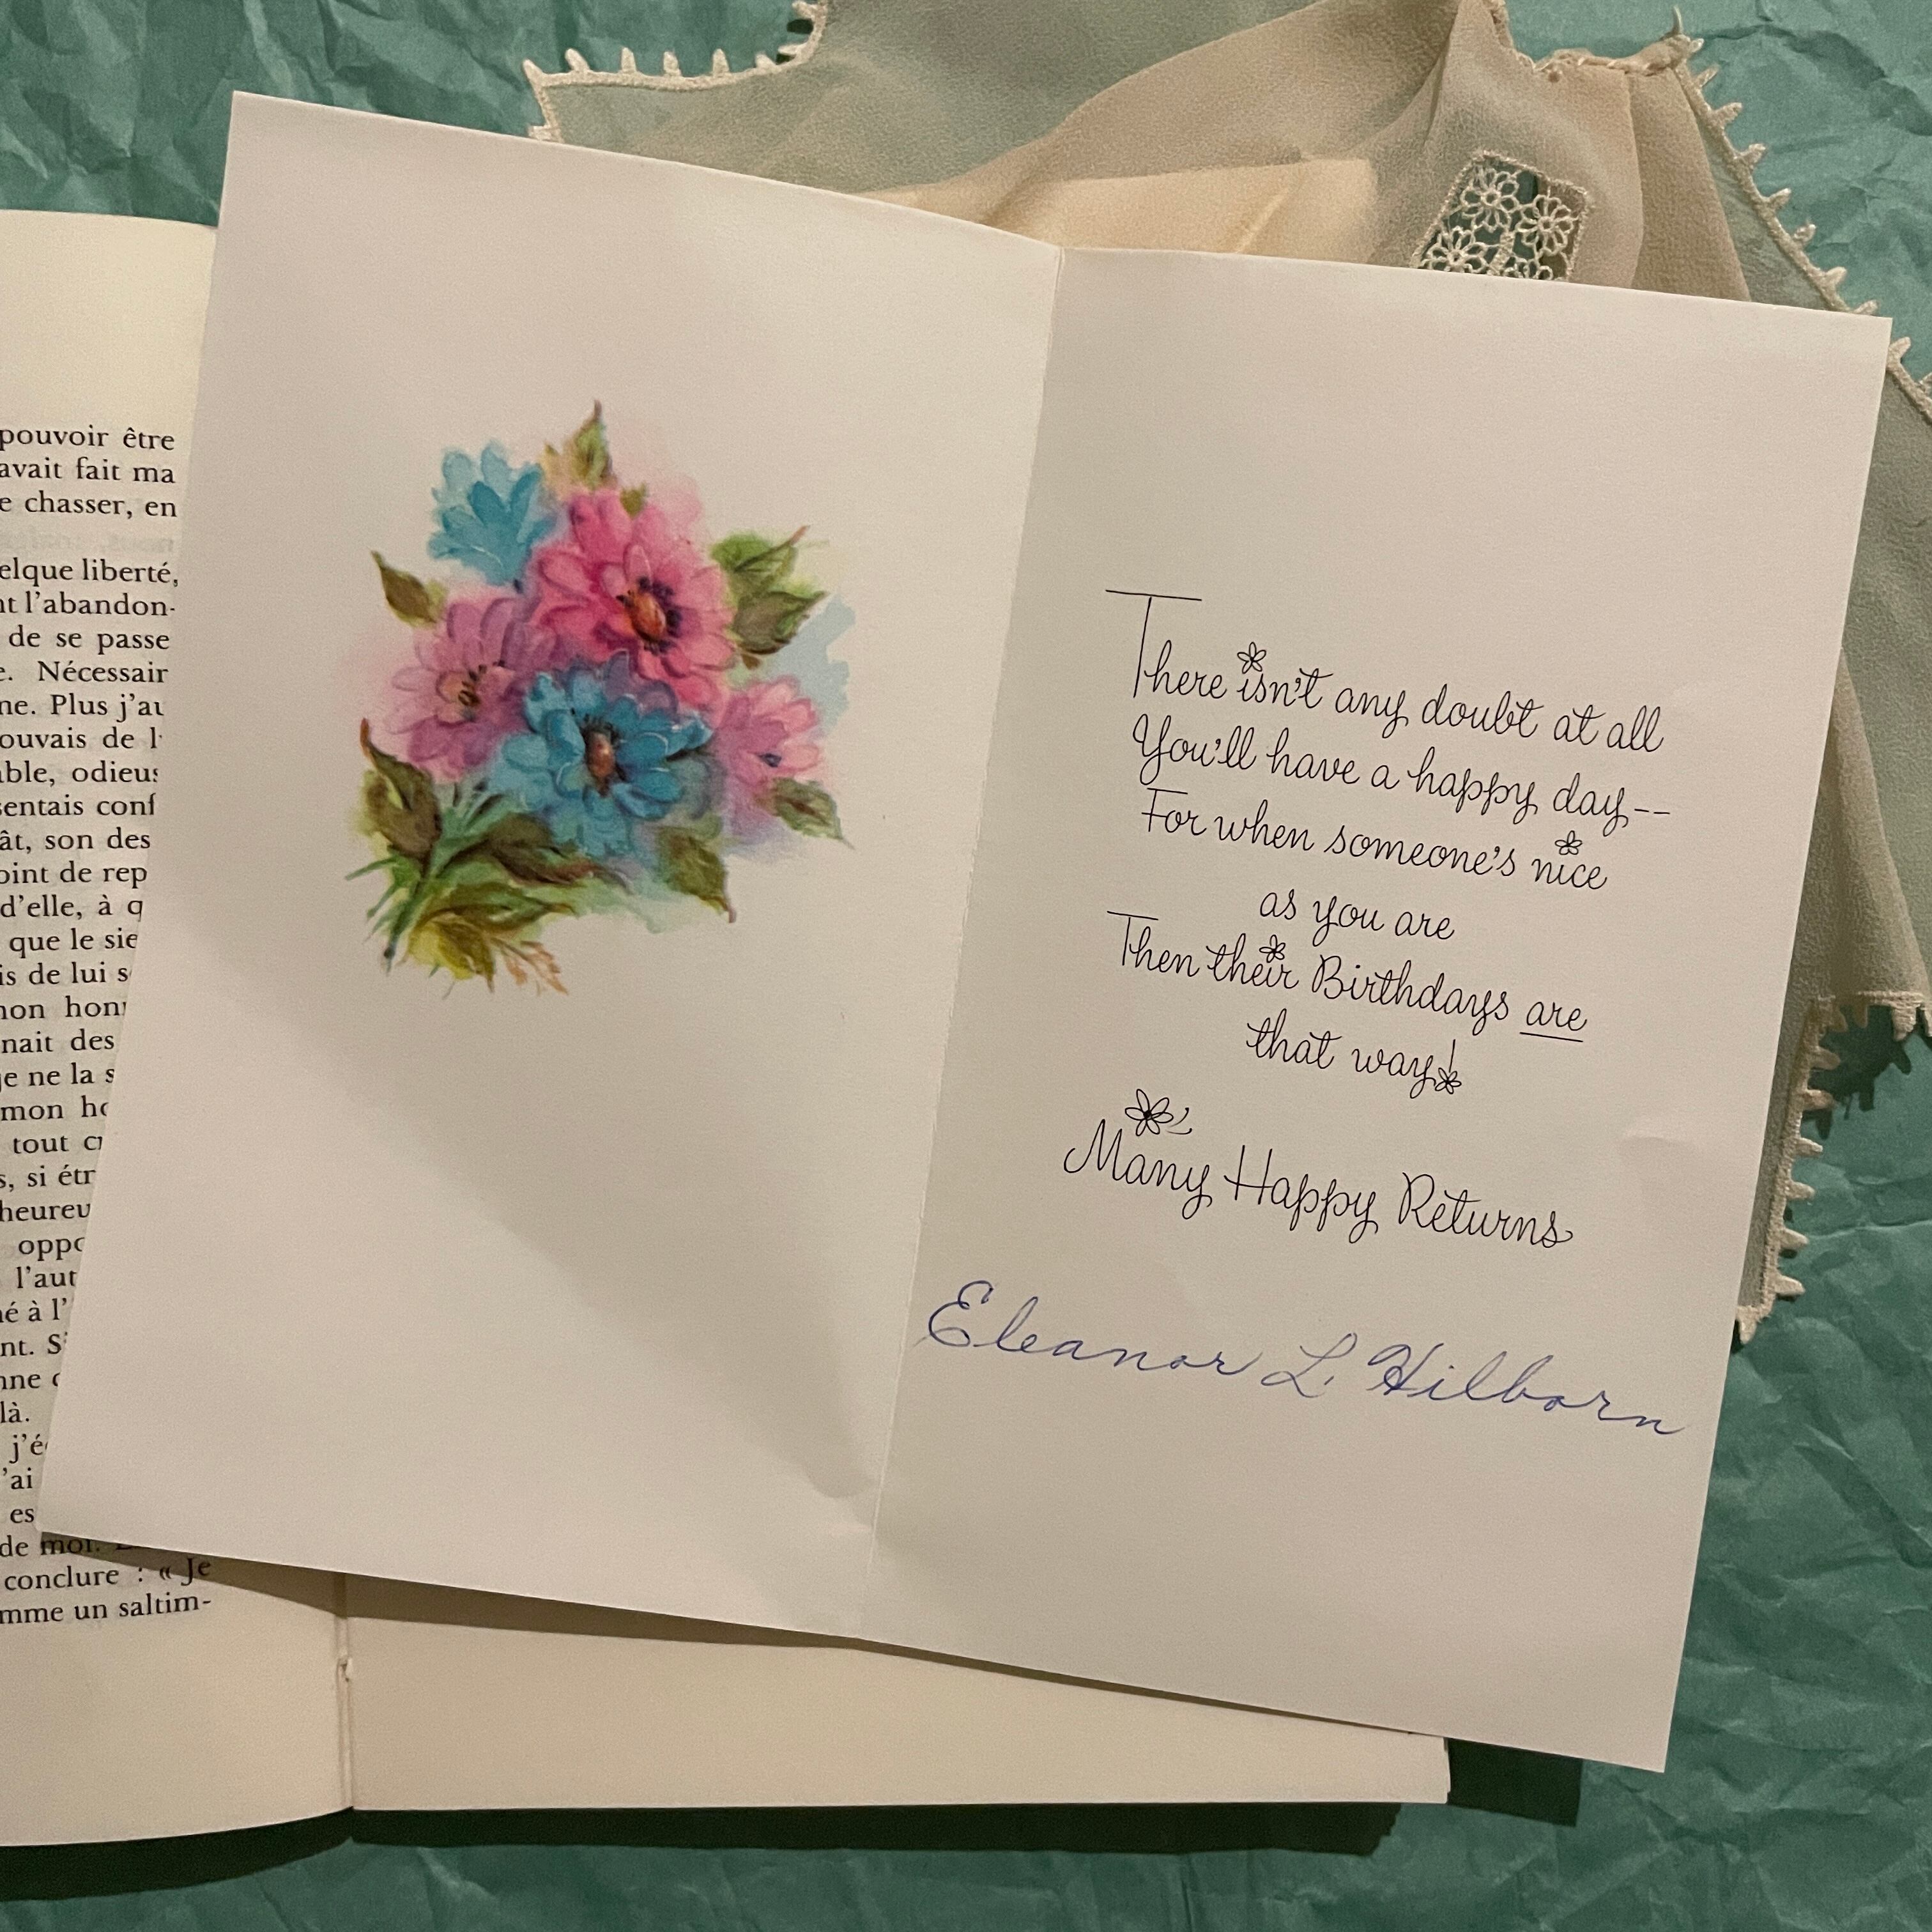 pouvoir être
avait fait ma
chasser, en
liberté,
l'abandon-
de se passe
Nécessair
Plus j'au
de l'
odieus
sentais conf
son des
de rep
d'elle, à q
que le sie
de lui s
mon hon
des
je ne la s
mon ho
tout cr
si étr
oppo
l'aut
à l'
S'
là.
j'é
'ai
es
de moi.
conclure : « Je
un saltim-
There isn't any doubt at all
You'll have a happy day--
For when someone's nice
as you are
Then their Birthdays are
that way!
Many Happy Returns
Eleanor L. Hilborn